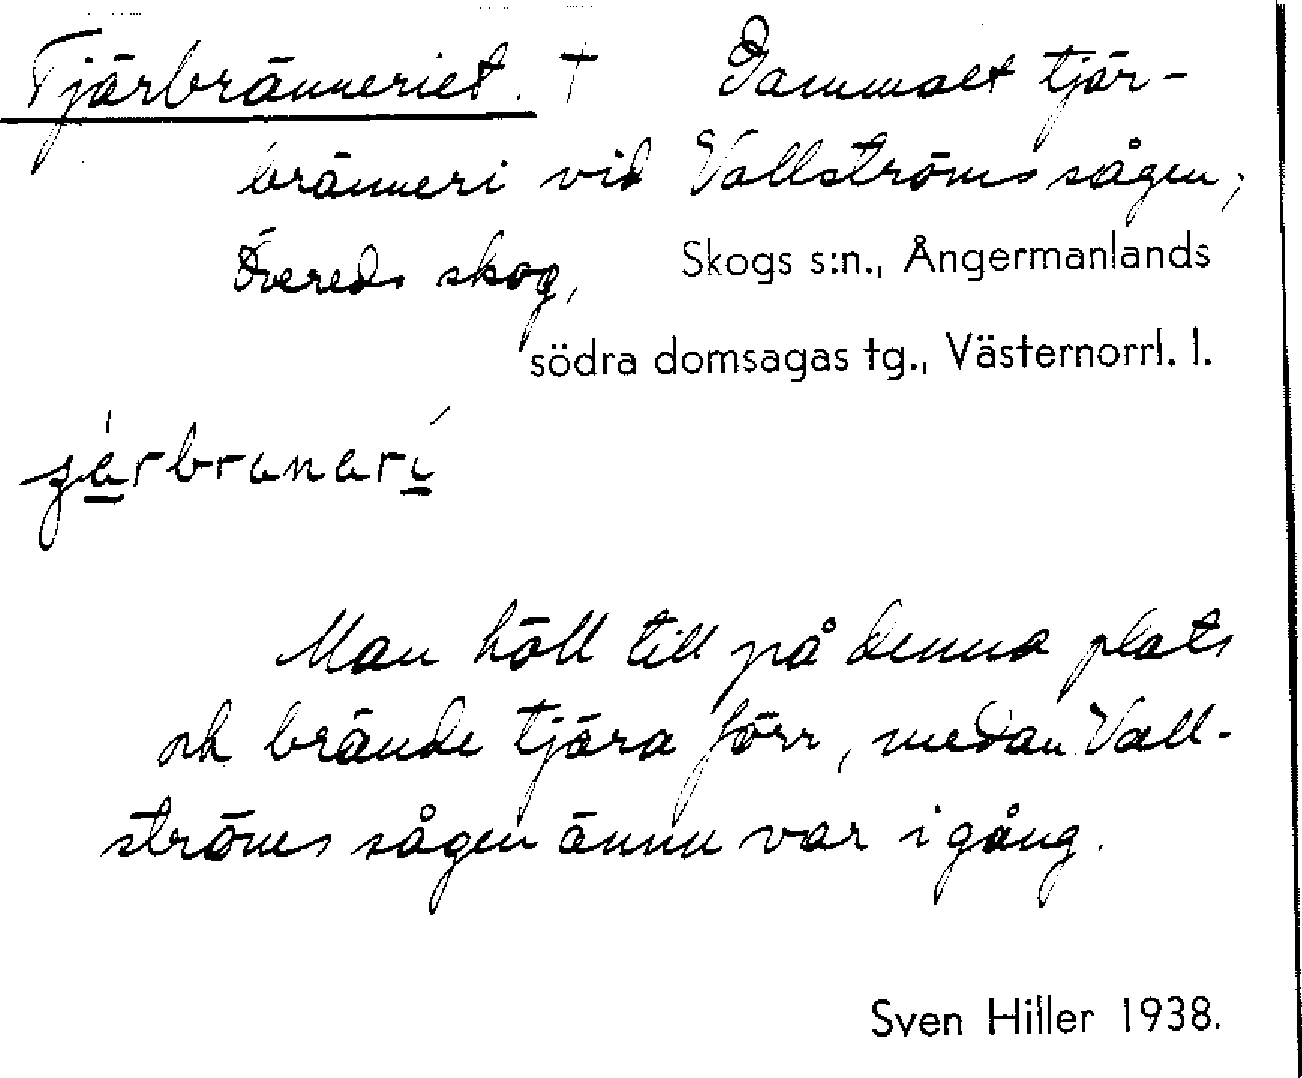 Tjärbränneriet. † Gammalt tjär-
bränneri vid Vallströmssågen,
Övereds skog, Skogs s:n., Ångermanlands
södra domsagas tg., Västernorrl. l.
Man höll till på denna plats
och brände tjära förr, medan Vall-
strömssågen ännu var i gång.
Sven Hiller 1938.